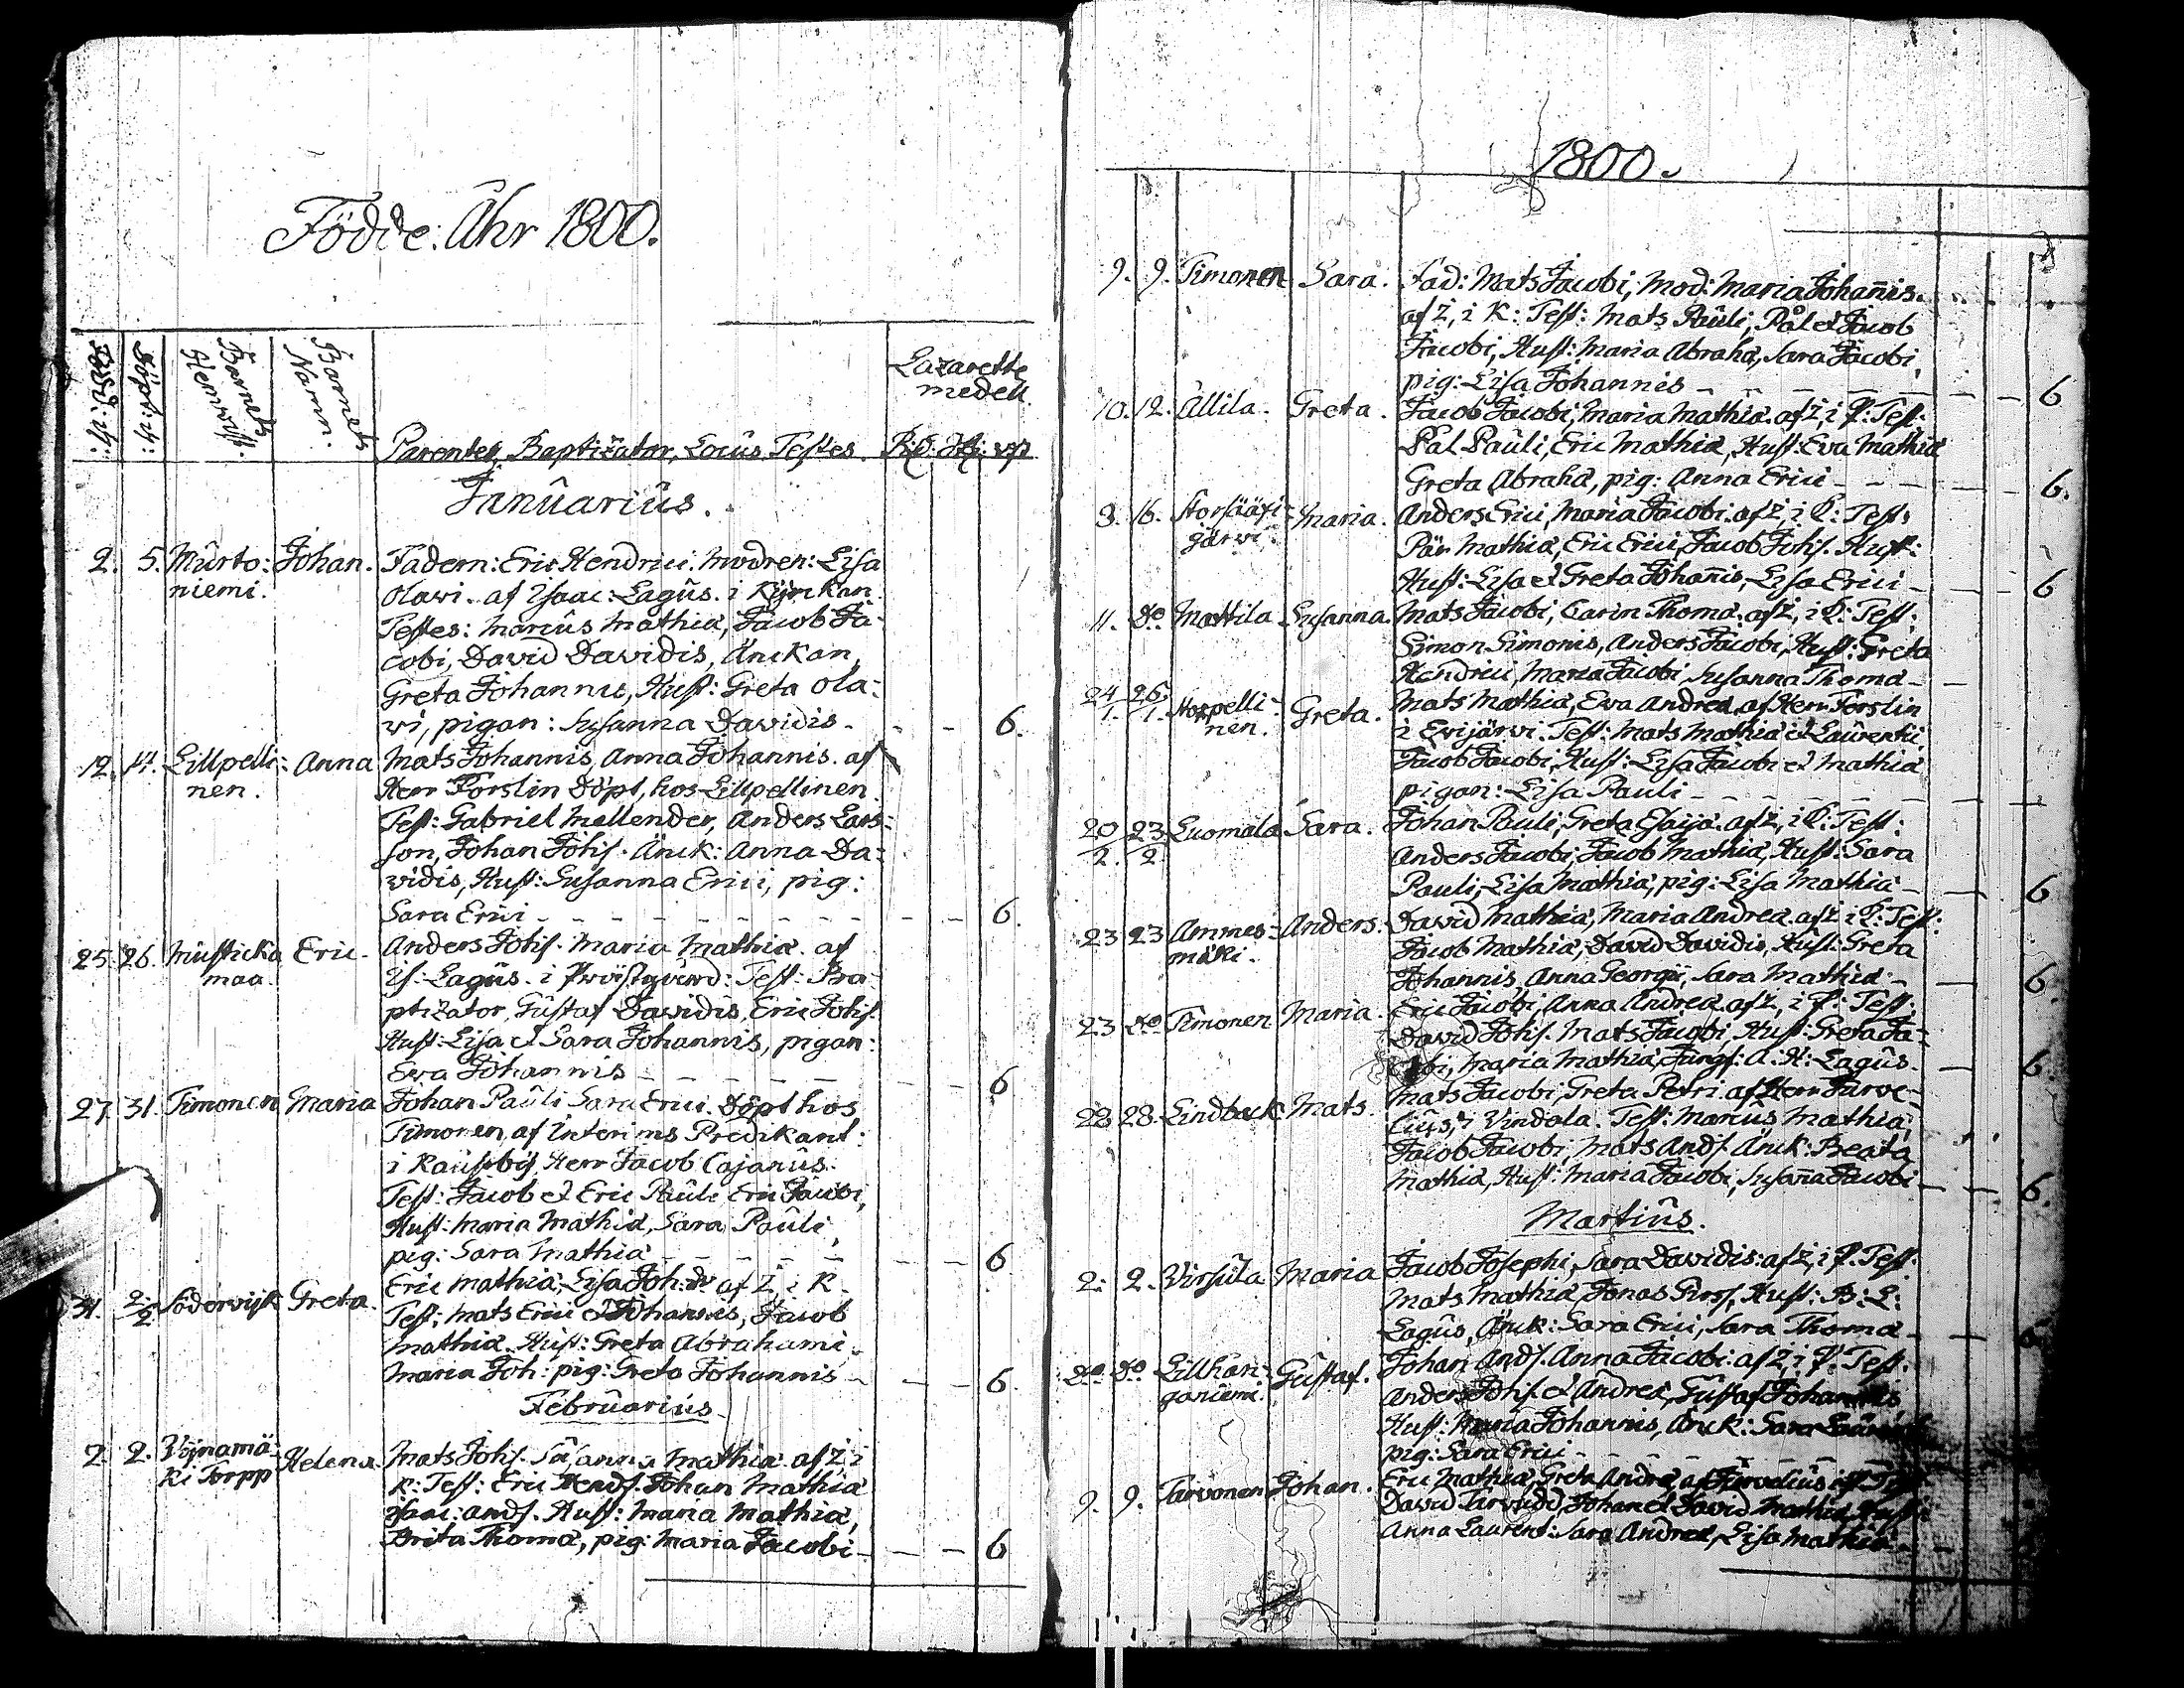 Födde: Åhr 1800.
Född: in:
Döpt: in:
Barnets Hemvist.
Barnets Namn.
Parentes, Baptizator, Locus, Testes.
Lazarette medell.
Januarius.
2. 5. Murto: niemi. Johan. Fadern: Eric Hendrici. Modren: Lisa
Olavi. af Isaac: Lagus. i Kyrckan.
Testes: Marcus Mathiæ, Jacob Ja-
cobi, David Davidis, Änckan,
Greta Johannis, Hust: Greta Ola-
vi, pigan: Susanna Davidis - - - 6.
12. 14. Lillpelli: nen. Anna Mats Johannis, Anna Johannis. af
Herr Forslin döpt, hos Lillpellinen.
Test: Gabriel Mellender, Anders Lars-
son, Johan Johs. Änck: Anna Da-
vidis, Hust: Susanna Erici, pig:
Sara Erici - - - 6.
25. 26. Musticka maa. Eric. Anders Johs. Maria Mathiæ. af
Is: Lagus. i Prostgård: Test: Ba-
ptizator, Gustaf Davidis, Eric Johs.
Hust: Lisa et Sara Johannis, pigan:
Eva Johannis - - - 6
27. 31. Timonen Maria Johan Pauli Sara Erici. döpt hos
Timonen af Interims Predikant:
i Kaustby Herr Jacob Cajanus.
Test: Jacob et Eric Pauli Eric Jacobi,
Hust: Maria Mathiæ, Sara Pauli,
pig: Sara Mathiæ - - - 6
31. 2/2 Södervijk Greta. Eric Mathiæ, Lisa Joh:dr af Z, i K.
Test: Mats Erici et Johannis, Jacob
Mathiæ. Hust: Greta Abrahami,
Maria Joh: pig: Greta Johannis - - - 6.
Februarius
2. 2. Vijnamä- ki Torpp Helena. Mats Johs. Susanna Mathiæ af Z, i
K: Test: Eric Hends. Johan Mathiæ
Isaac: Ands. Hust: Maria Mathiæ,
Brita Thomæ, pig: Maria Jacobi - - - 6
1800.
9. 9. Timonen Sara. Fad: Mats Jacobi, Mod: Maria Johannis.
af Z, i K: Test: Mats Pauli, Pål et Jacob
Jacobi, Hust: Maria Abrahå, Sara Jacobi,
pig: Lisa Johannis - - - 6
10. 12. Allila. Greta. Jacob Jacobi, Maria Mathiæ. af Z, i P: Test.
Pål Pauli, Eric Mathiæ, Hust: Eva Mathiæ
Greta Abrahå, pig: Anna Erici - - - 6.
3. 16. järvi. Maria. Anders Erici, Maria Jacobi. af Z, i P: Test:
Pär Mathiæ, Eric Erici, Jacob Johs. Hust:
Hust: Lisa et Greta Johannis, Lisa Erici - - - 6
11. do Mattila Susanna. Mats Jacobi, Carin Thomæ. af Z, i P: Test:
Simon Simonis, Anders Jacobi, Hust: Greta
Hendrici, Maria Jacobi, Susanna Thomæ - -
24/1. 26/1. nen. Greta. Mats Mathiæ, Eva Andreæ af Herr Forslin
i Evijärvi. Test: Mats Mathiæ et Laurentii,
Jacob Jacobi, Hust: Lisa Jacobi et Mathiæ
pigan: Lisa Pauli - - -
20/2. 23/2. Luomala Sara. Johan Pauli, Greta Esaijæ. af Z, i P: Test:
Anders Jacobi, Jacob Mathiæ, Hust: Sara
Pauli, Lisa Mathiæ, pig: Lisa Mathiæ - - 6
23 23 Ammes- mäki. Anders. David Mathiæ, Maria Andreæ. af Z i P: Test:
Jacob Mathiæ, David Davidis, Hust: Greta
Johannis, Anna Georgii, Sara Mathiæ - - 6.
23 do Timonen Maria. Eric Jacobi, Anna Andreæ af Z, i P. Test.
David Johs. Mats Jacobi, Hust: Greta Ja-
cobi, Maria Mathiæ, Jungf: A: H: Lagus. - 6.
28 28. Lindback Mats. Mats Jacobi, Greta Petri. af Herr Turve-
lius, i Vindala. Test: Marcus Mathiæ,
Jacob Jacobi, Mats Ands. Änck: Beata
Mathiæ, Hust: Maria Jacobi, Susanna Jacobi - - 6.
Martius.
2. 2. Virsula Maria Jacob Josephi, Sara Davidis: af Z, i P. Test:
Mats Mathiæ Jonas Hust: B: L:
Lagus, Änck: Sara Erici, Sara Thomæ - - 6
do do Lillhari- Gustaf. Johan Ands. Anna Jacobi: af Z, i P. Test.
Anders Johs. et Andreæ, Gustaf Johannis
Hust: Maria Johannis, Änck: Sara
pig: Sara Erici - - -
9. 9. Tarvonen Johan. Eric Mathiæ, Greta Andreæ, af Turvelius i P. Test
David Johan et David Mathiæ, Hust:
Anna Laurent: Sara Andreæ, Lisa Mathiæ - -